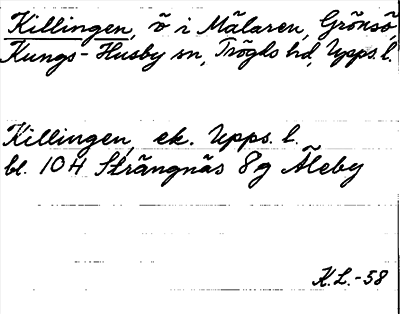 Killingen, ö i Mälaren, Grönsö,
Kungs-Husby sn, Trögds hd, Upps. l.
Killingen, ek. Upps. l.
bl. 10H Strängnäs 8g Åleby
K.L.-58